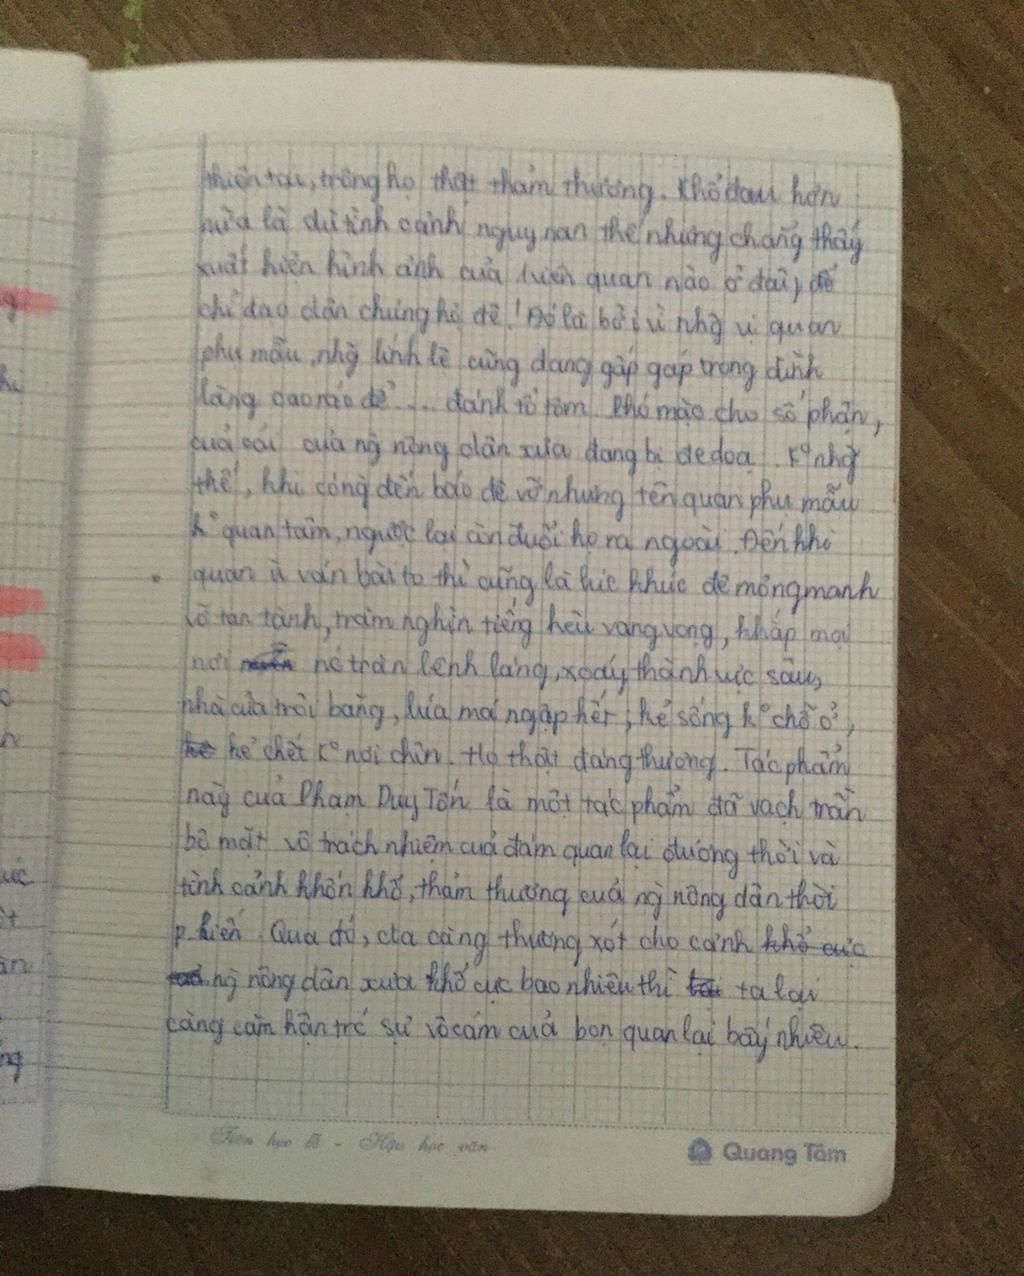 thiên tai, trông họ thật thảm thương. Khổ đau hơn
nữa là dù tình cảnh nguy nan thế nhưng chẳng thấy
xuất hiện hình ảnh của quan nào ở đây để
chỉ đạo dân chúng hộ đê! Đó là bởi vì nhg̃ vị quan
phụ mẫu, nhg̃ lính lệ cũng đang gấp gáp trong đình
làng cao ráo để.... đánh tổ tôm. Phó mặc cho số phận,
của cải của ng̀ nông dân xưa đang bị đe doạ. K° nhg̃
thế, khi có ng̀ đến báo đê vỡ nhưng tên quan phụ mẫu
k° quan tâm, ngược lại còn đuổi họ ra ngoài. Đến khi
quan ù ván bài to thì cũng là lúc khúc đê mỏng manh
vỡ tan tành, trăm nghìn tiếng kêu vang vọng, khắp mọi
nơi nc tràn lênh láng, xoáy thành vực sâu,
nhà cửa trôi băng, lúa má ngập hết; kẻ sống k° chỗ ở,
kẻ chết k° nơi chôn. Họ thật đáng thương. Tác phẩm
này của Phạm Duy Tốn là một tác phẩm đã vạch trần
bộ mặt vô trách nhiệm của đám quan lại đương thời và
tình cảnh khốn khổ, thảm thương của ng̀ nông dân thời
p.kiến. Qua đó, cta càng thương xót cho cảnh khổ cực
ng̀ nông dân xưa khổ cực bao nhiêu thì ta lại
càng căm hận trc sự vô cảm của bọn quan lại bấy nhiêu.
Tiên học lễ - Hậu học văn
Quang Tâm